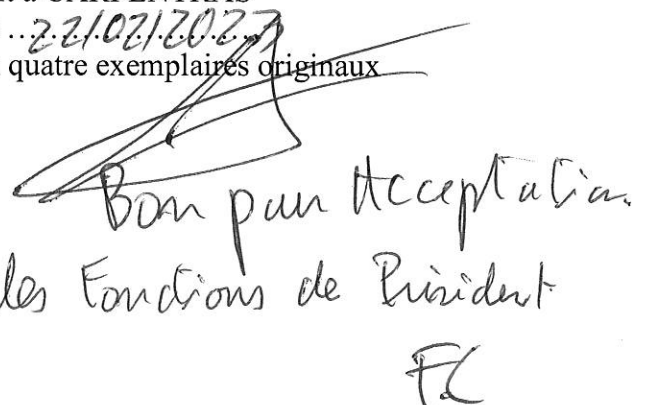 à CARPENTRAS
22/02/2023
quatre exemplaires originaux
Bon pour Acceptation
des Fonctions de Président
F.C